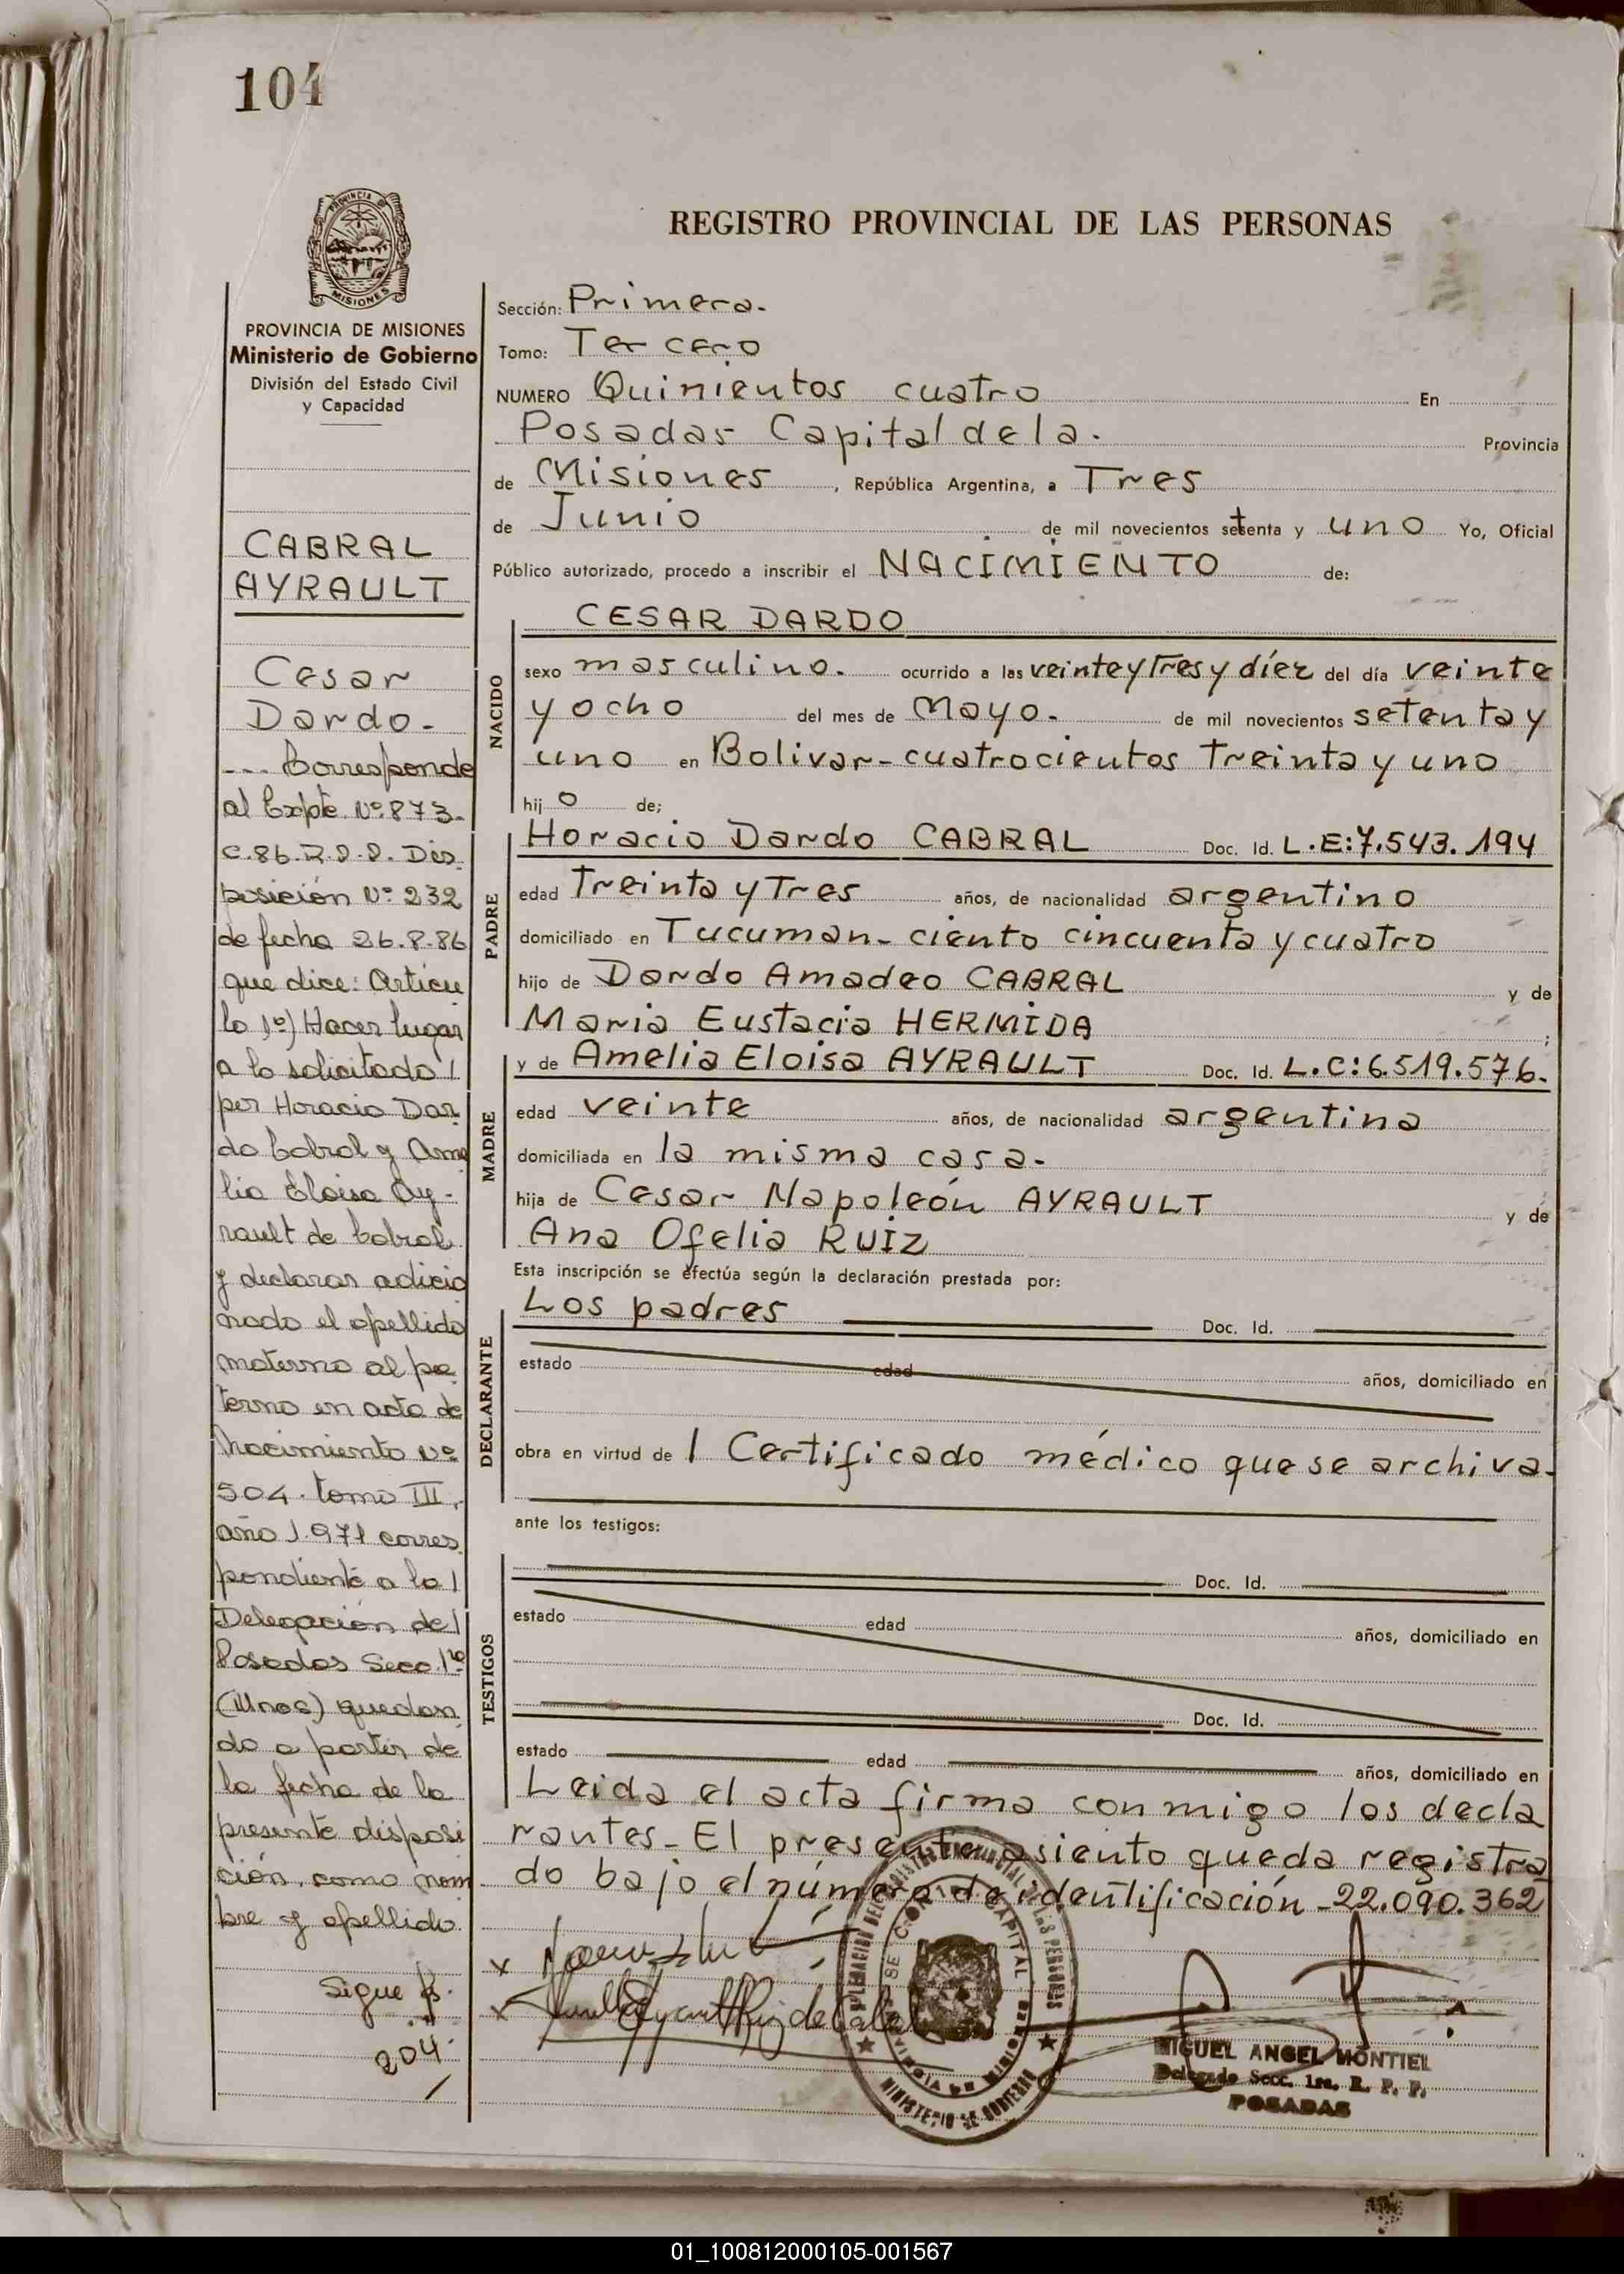 104
PROVINCIA DE
MISIONES
REGISTRO PROVINCIAL DE LAS PERSONAS
PROVINCIA DE MISIONES
Ministerio de Gobierno
División del Estado Civil
y Capacidad
CABRAL
AYRAULT
Cesar
Dardo-
--- Corresponde
al Expte Nº 873-
C.86.R.P.P. Dis
posición Nº 232
de fecha 26.8.86
que dice: Artícu
lo 1º) Hacer lugar
a lo solicitado /
por Horacio Dar
do Cabral y Ame
lia Eloisa Ay-
rault de Cabral
y declarar adicio
nado el apellido
materno al pa
terno en acta de
Nacimiento Nº
504. tomo III,
año 1.971 corres
pondiente a la /
Delegación de /
Posadas Secc. 1ra
(Unos) quedan
do a partir de
la fecha de la
presente disposi
ción, como nom
bre y apellido.
Sigue fs.
204
Sección: Primera.
Tomo: Tercero
NUMERO Quinientos cuatro En
Posadas Capital de la. Provincia
de Misiones, República Argentina, a Tres
de Junio de mil novecientos setenta y uno Yo, Oficial
Público autorizado, procedo a inscribir el NACIMIENTO de:
NACIDO
CESAR DARDO
sexo masculino. ocurrido a las veinte y Tres y díez del día veinte
y ocho del mes de Mayo. de mil novecientos setenta y
uno en Bolivar-cuatrocientos Treinta y uno
hij o de;
PADRE
Horacio Dardo CABRAL Doc. Id. L.E:7.543.194
edad Treinta y Tres años, de nacionalidad argentino
domiciliado en Tucuman- ciento cincuenta y cuatro
hijo de Dardo Amadeo CABRAL y de
Maria Eustacia HERMIDA ;
MADRE
y de Amelia Eloisa AYRAULT Doc. Id. L.C:6.519.576.
edad veinte años, de nacionalidad argentina
domiciliada en la misma casa-
hija de Cesar Napoleón AYRAULT y de
Ana Ofelia RUIZ
Esta inscripción se efectúa según la declaración prestada por:
DECLARANTE
Los padres Doc. Id.
estado edad años, domiciliado en
obra en virtud de 1 Certificado médico que se archiva-
ante los testigos:
TESTIGOS
Doc. Id.
estado edad años, domiciliado en
Doc. Id.
estado edad años, domiciliado en
Leida el acta firma conmigo los decla
rantes- El presente asiento queda registra
do bajo el número de identificación -22.090.362
x
x
CAPITAL
MINISTERIO DE GOBIERNO
MIGUEL ANGEL MONTIEL
Delegado Secc. 1ra. R. P. P.
POSADAS
01_100812000105-001567